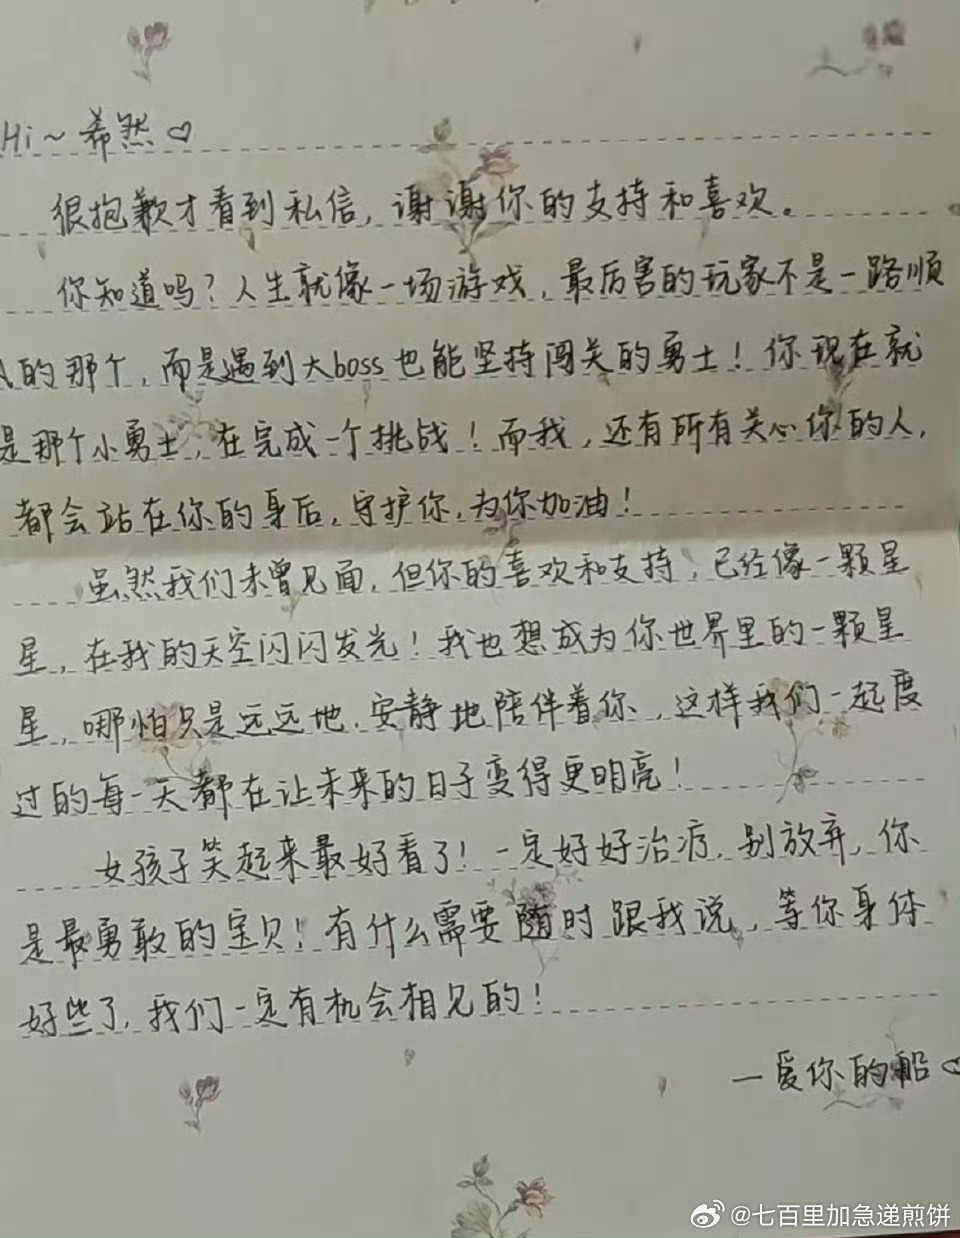 Hi～希然♡
很抱歉才看到私信，谢谢你的支持和喜欢。
你知道吗？人生就像一场游戏，最厉害的玩家不是一路顺
的那个，而是遇到大boss也能坚持闯关的勇士！你现在就
是那个小勇士，在完成一个挑战！而我，还有所有关心你的人，
都会站在你的身后，守护你，为你加油！
虽然我们未曾见面，但你的喜欢和支持，已经像一颗星
星，在我的天空闪闪发光！我也想成为你世界里的一颗星
星，哪怕只是远远地，安静地陪伴着你，这样我们一起度
过的每一天都在让未来的日子变得更明亮！
女孩子笑起来最好看了！一定好好治疗，别放弃，你
是最勇敢的宝贝！有什么需要随时跟我说，等你身体
好些了，我们一定有机会相见的！
—爱你的船♡
@七百里加急递煎饼